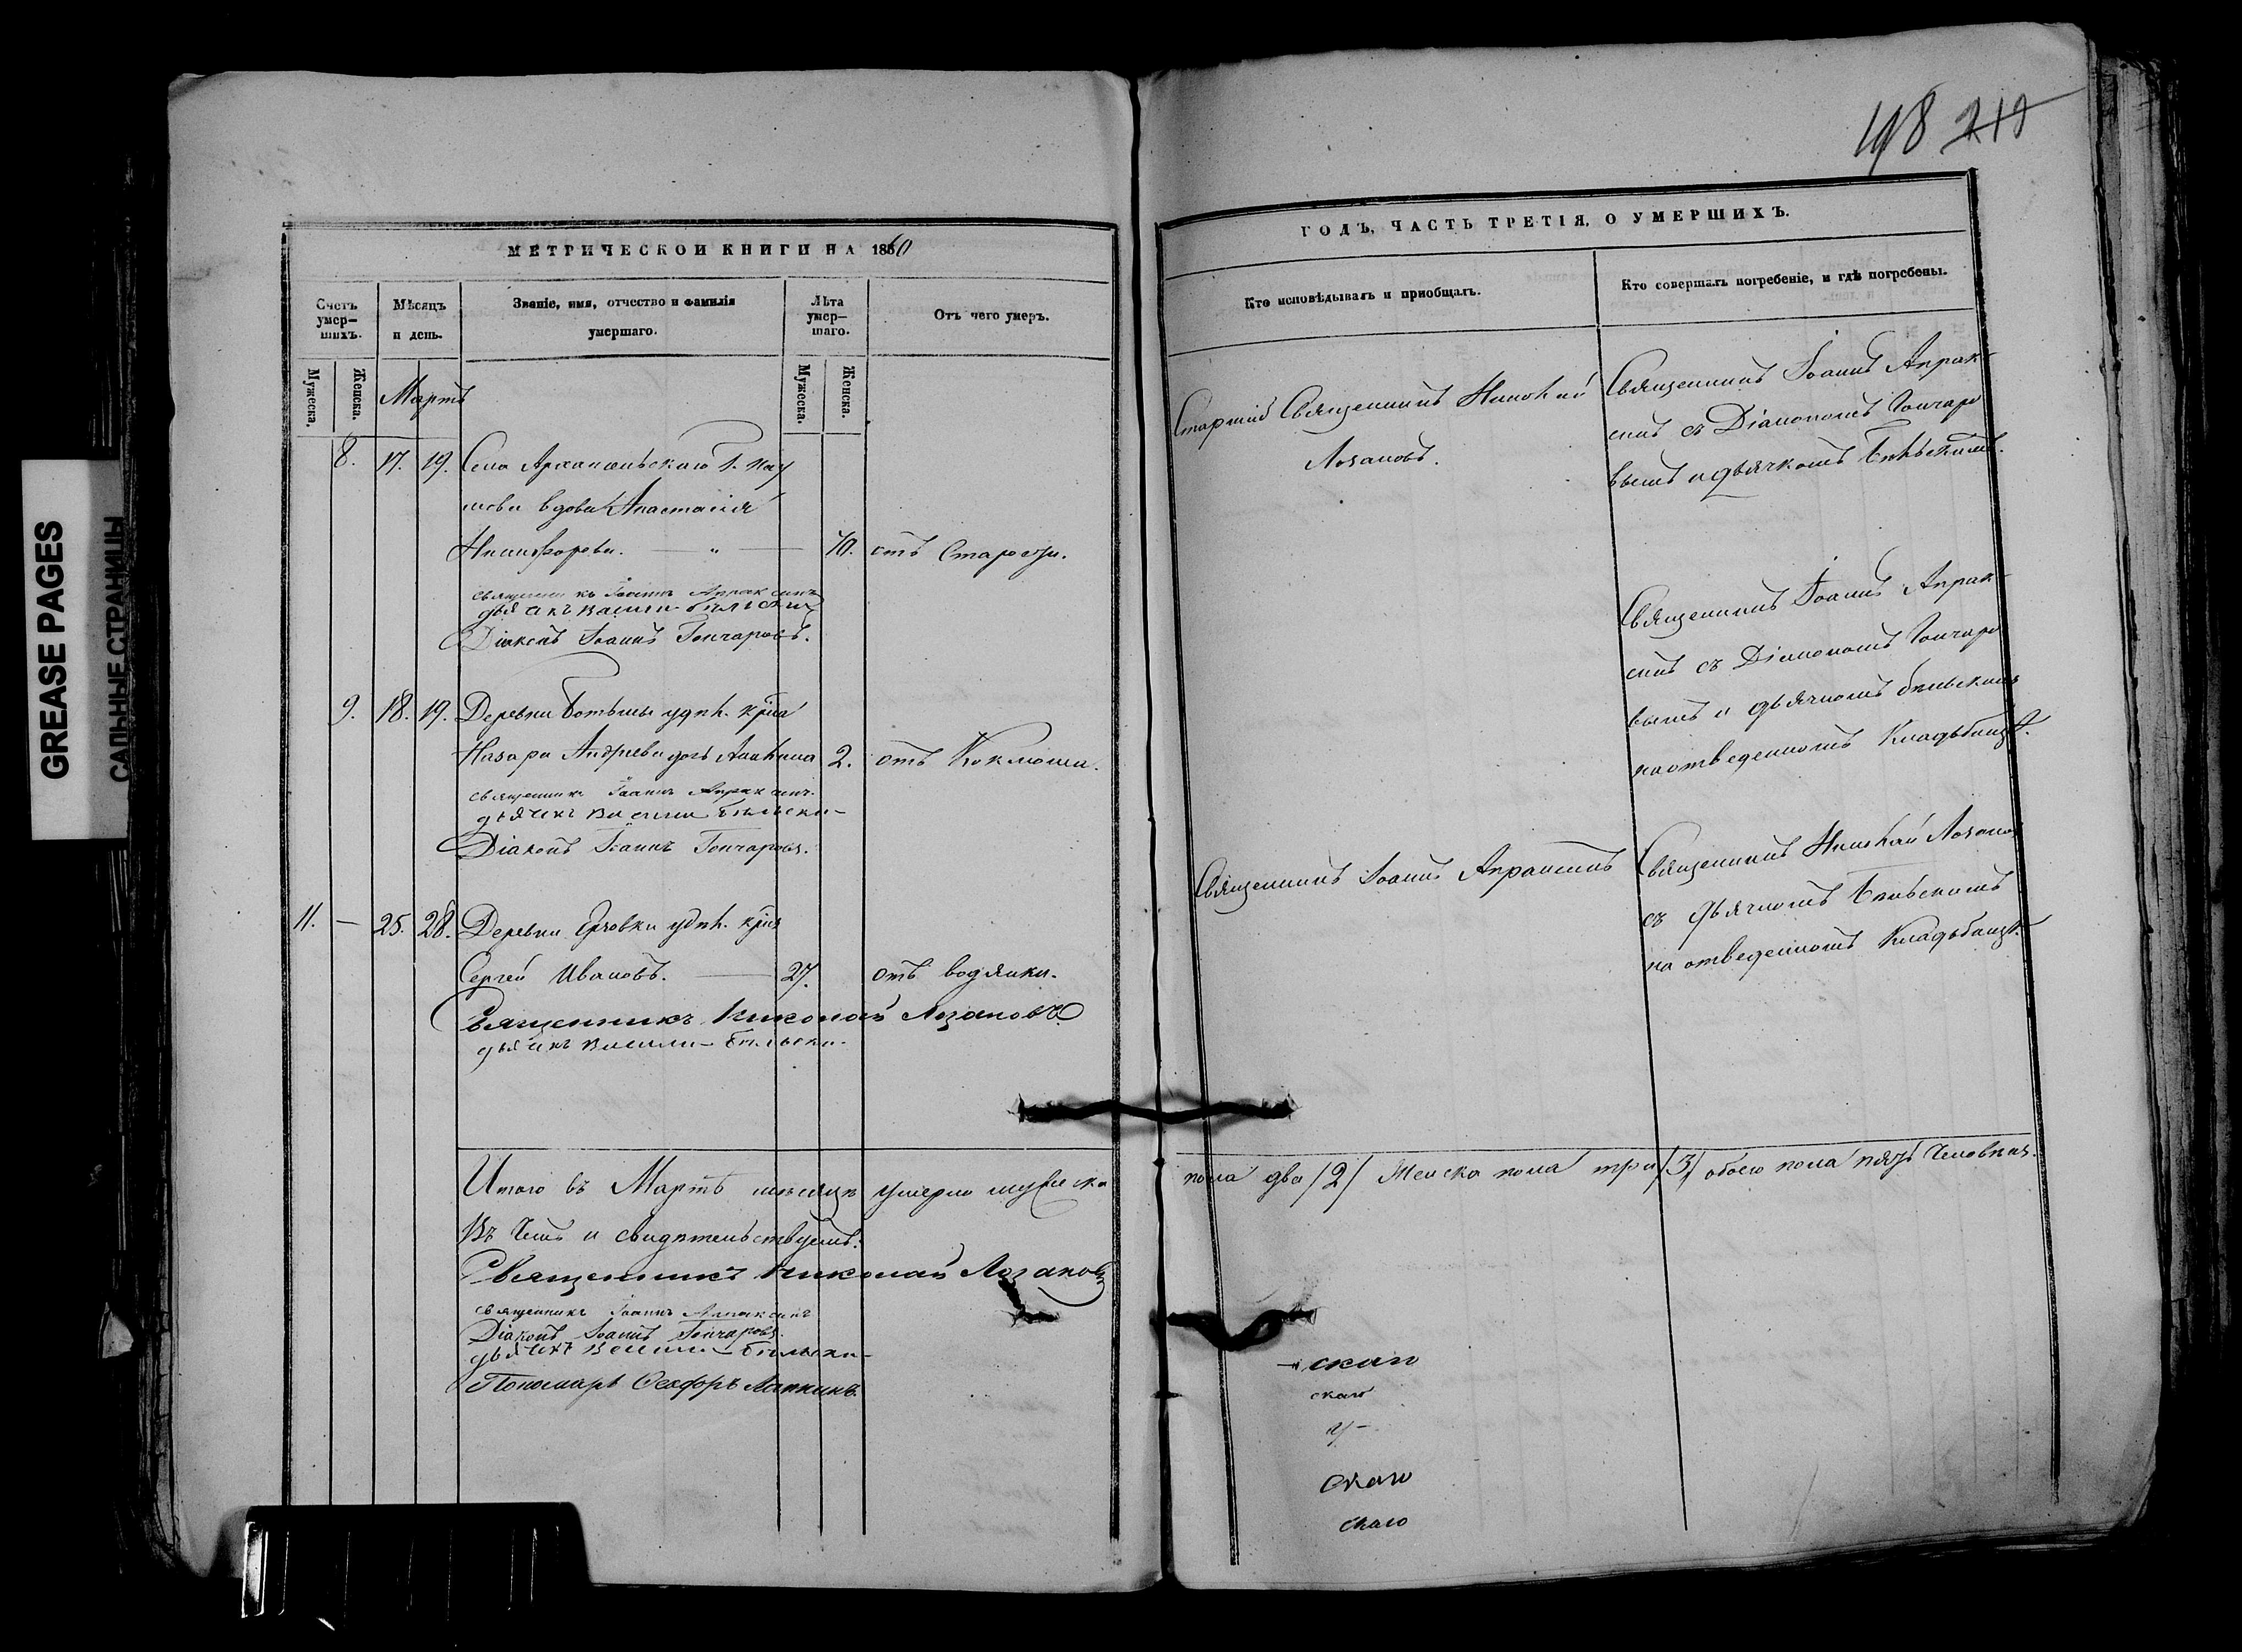 GREASE PAGES
САЛЬНЫЕ СТРАНИЦЫ
МЕТРИЧЕСКОЙ КНИГИ НА 1860
Счетъ умер-шихъ.
Мѣсяцъ и день.
Званіе, имя, отчество и фамилія умершаго.
Лѣта умер-шаго.
Отъ чего умеръ.
Мужеска.
Женска.
Мужеска.
Женска.
Мартъ
8. 17. 19. Села Архангельскаго Г.
вдова Анастасія
Никифорова. — „ — 70. отъ Старости.
священникъ Іоаннъ Апраксинъ
дьячекъ Василий Бѣльский
Діаконъ Іоаннъ Гончаровъ.
9. 18. 19. Деревни Ботьмы удѣл. кр-на
Назара Андреева дочь 2. отъ Коклюша.
священникъ Іоаннъ Апраксинъ
дьячекъ Василий Бѣльски-
Діаконъ Іоаннъ Гончаровъ.
11. — 25. 28. Деревни удѣл. кр-нъ
Сергей Ивановъ. — 27. отъ водянки.
Священникъ Николай Лозановъ
дьячекъ Василий Бѣльски-
Итого въ Мартѣ мѣсяцѣ умерло мужеска
Въ чемъ и свидѣтельствуемъ:
Священникъ Николай Лозановъ
священникъ Іоаннъ Апраксинъ
Діаконъ Іоаннъ Гончаровъ.
дьячекъ Василий Бѣльски-
Пономарь Лапкинъ
198 219
ГОДЪ, ЧАСТЬ ТРЕТІЯ, О УМЕРШИХЪ.
Кто исповѣдывалъ и пріобщалъ.
Кто совершалъ погребеніе, и гдѣ погребены.
Старшій Священникъ Николай
Лозановъ.
Священникъ Іоаннъ Апрак-
синъ съ Діакономъ Гончаро
вымъ и дьячкомъ Бѣльскимъ.
Священникъ Іоаннъ Апрак-
синъ съ Діакономъ Гончаро
вымъ и дьячкомъ Бѣльскимъ
на отведенномъ Кладбищѣ.
Священникъ Іоаннъ Апраксинъ
Священникъ Николай Лозановъ
съ дьячкомъ Бѣльскимъ
на отведенномъ Кладьбищѣ.
пола два /2/ Женска пола три /3/ обоего пола пять Человѣкъ.
скаго
скаго
скаго
скаго